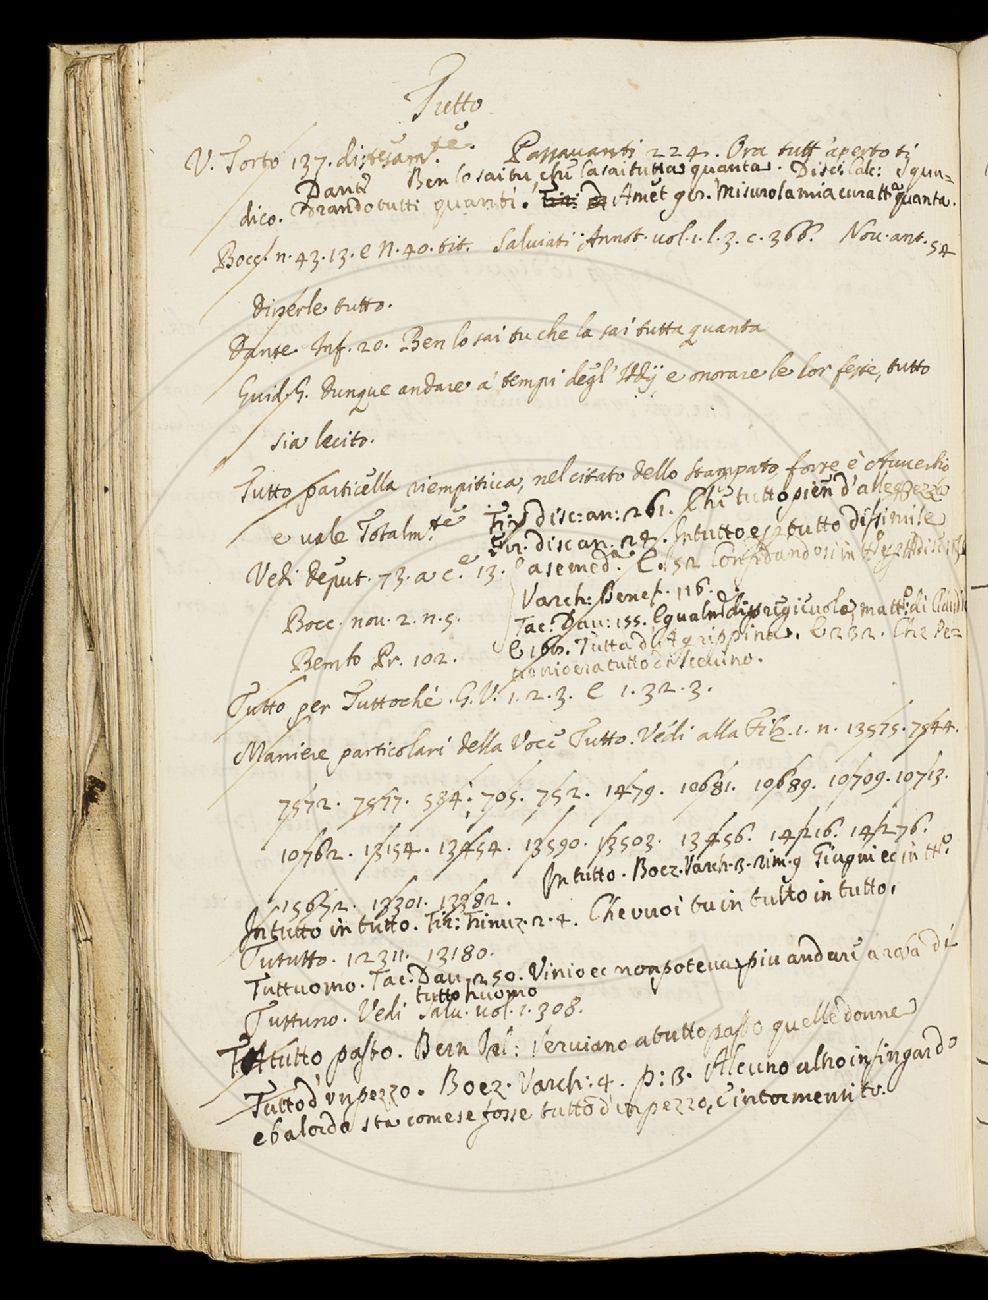 Tutto
V. Torto 137. distesam.te Passavanti 224. Ora tutt'aperto ti
Dante Ben lo sai tu che la sai tutta quanta. Disc. Calc:
dico. tutti quanti. Amet 90. Misurola mia cura tt.a quanta.
Bocc. n. 43. 13. e n. 40. tit. Salviati Annot. vol. 1. l. 3. c. 366. Nov. ant. 54
Disperle tutto.
Dante Inf. 20. Ben lo sai tu che la sai tutta quanta
Guid. G. Dunque andare a' tempi degl'Iddij e onorare le lor feste, tutto
sia lecito.
Tutto particella riempitiva, nel citato dello stampato forse è Avverbio
e vale Totalm.te Fir: disc: an: 261. Che tutto pien d'allegrezza
Fir. disc an. 24. In tutto e p tutto dissimile
Vedi Deput. 73. a c.e 13. a se med.o E. 52 Confidandosi in
Varch: Benef. 116.
Bocc. nov. 2. n. 5. Tac: Dav: 155. matt.o di
E 166. Tutta di Agrippina. E 232. Che Pez
Bembo Pr. 102. tutto di
Tutto per Tuttochè. G. V. 1. 2. 3. e 1. 32. 3.
Maniere particolari della Voce Tutto. Vedi alla Filz. 1. n. 13575. 7544.
7572. 7577. 534. 705. 752. 1479. 10681. 10689. 10709. 10713.
10762. 13154. 13454. 13590. 13503. 13456. 14216. 14276.
15632. 13301. 13382. In tutto. Boez. Varch. 3. rim. 9 Giugni ec in tt.o
In tutto in tutto. Fir: Trinuz. 2. 4. Che vuoi tu in tutto in tutto,
Tututto. 12311. 13180.
Tuttuomo. Tac. Dav. 250. Vinio ec non poteva più andare a roba di
tutto huomo
Tuttuno. Vedi Salv. vol. 1. 308.
A tutto pasto. Bern Ial: Serviano a tutto pasto quelle donne
Tutto d'un pezzo. Boez. Varch: 4. p: 3. Alcuno altro infingardo
e balordo sta come se fosse tutto d'un pezzo, e intormentito.